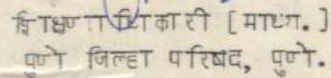 शिक्षणाधिकारी [माध्य.]
पुणे जिल्हा परिषद, पुणे.